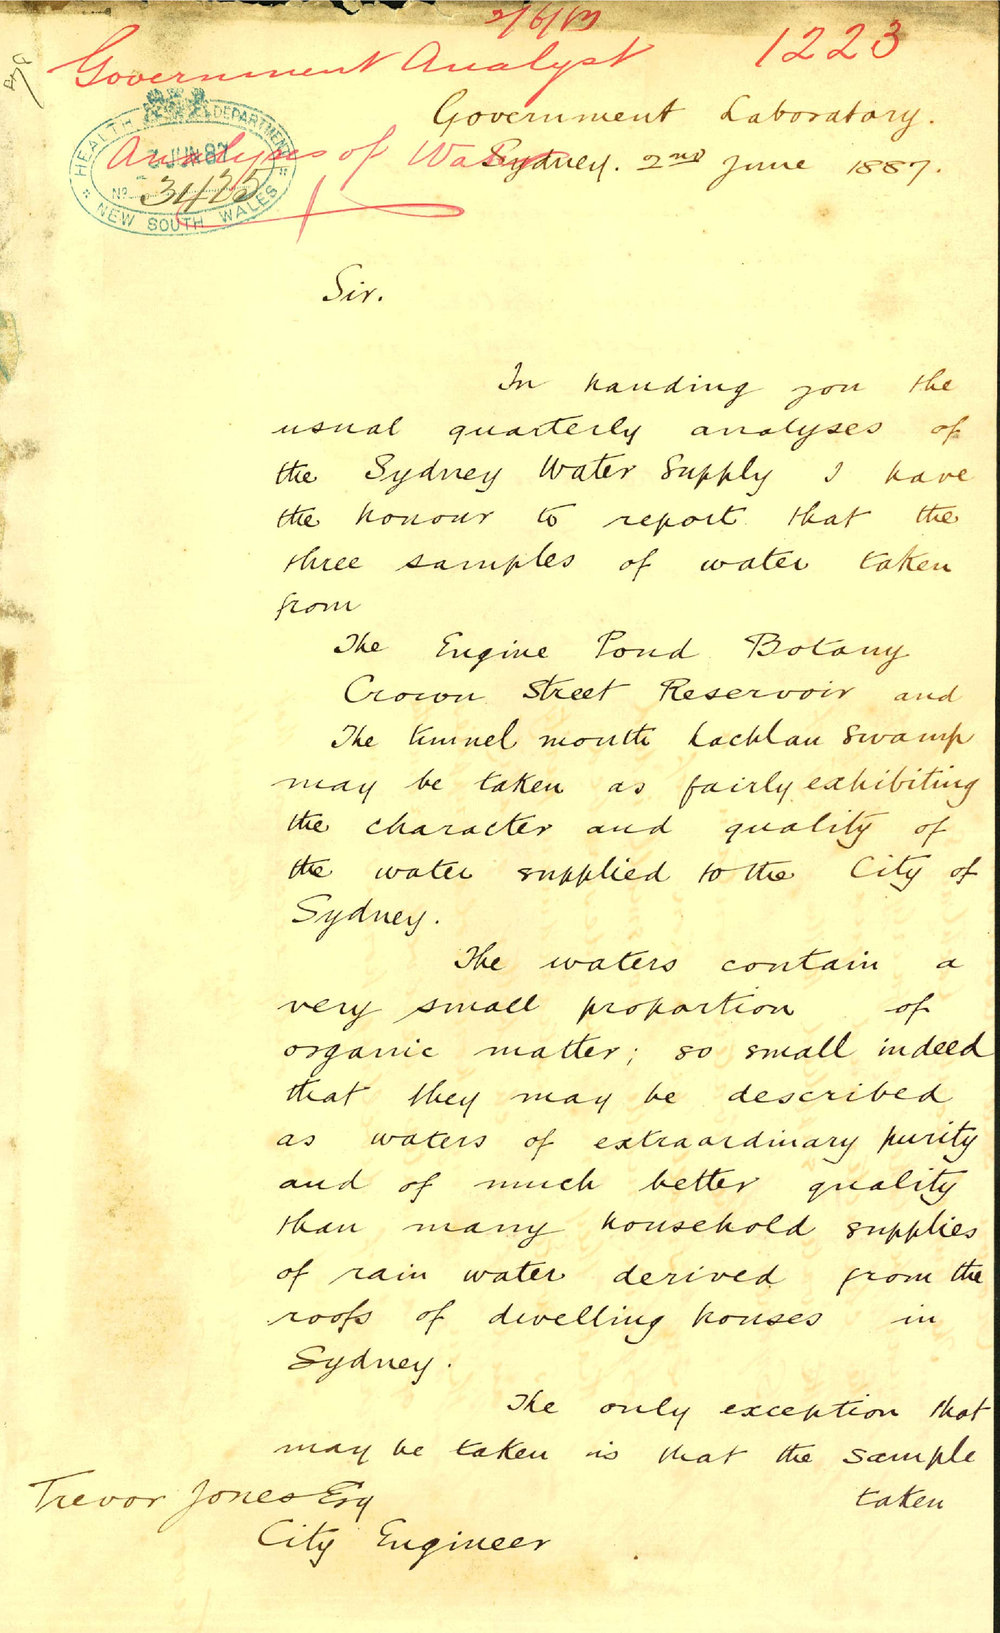 Government Analyst
1223
Analyses of Water
HEALTH DEPARTMENT
JUN 87
No 3425
NEW SOUTH WALES
Government Laboratory.
Sydney. 2nd June 1887.
Sir.
In handing you the
usual quarterly analyses of
the Sydney Water Supply I have
the honour to report that the
three samples of water taken
from
The Engine Pond Botany
Crown Street Reservoir and
The tunnel mouth Lachlan Swamp
may be taken as fairly exhibiting
the character and quality of
the water supplied to the City of
Sydney.
The waters contain a
very small proportion of
organic matter; so small indeed
that they may be described
as waters of extraordinary purity
and of much better quality
than many household supplies
of rain water derived from the
roofs of dwelling houses in
Sydney.
The only exception that
may be taken is that the sample
taken
Trevor Jones Esq
City Engineer